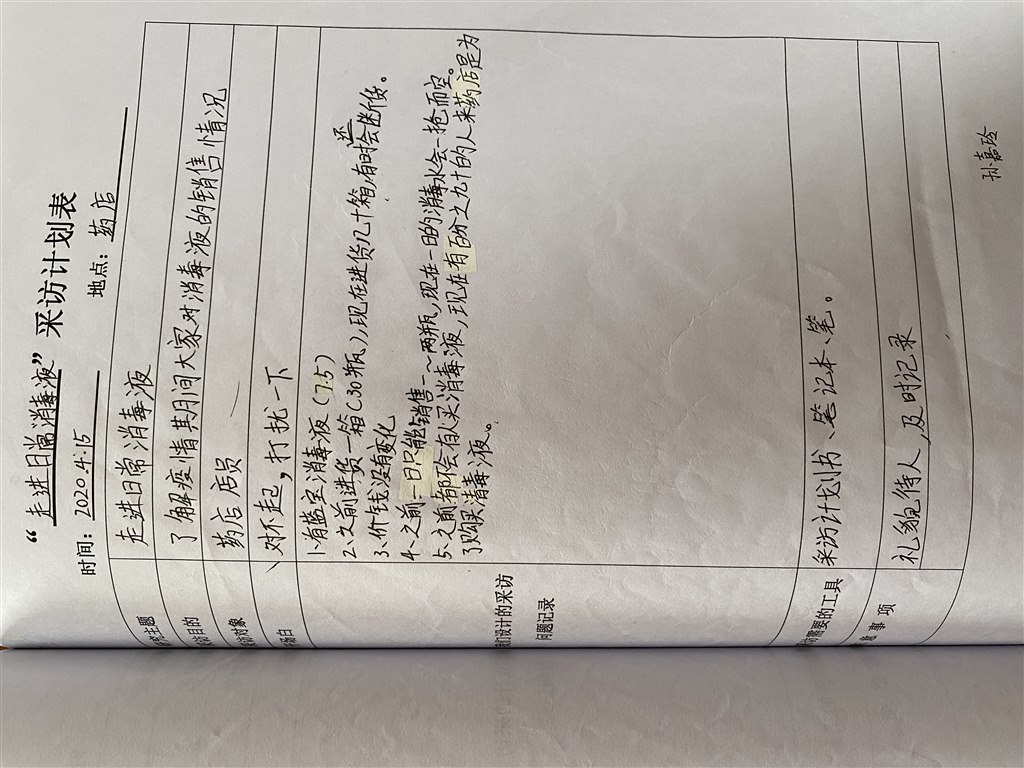 “走进日常消毒液”采访计划表
时间：2020.4.15 地点：药店
主题 走进日常消毒液
目的 了解疫情其月间大家对消毒液的销售情况
对象 药店店员
白 对不起，打扰一下
1、有蓝宝消毒液（7.5）
2、之前进货一箱（30瓶），现在进货几十箱，有时还会断货。
3、价钱没有变化
4、之前一日只能销售一~两瓶，现在一日的消毒水会一抢而空。
5、之前都会有人买消毒液，现在有百分之九十的人来药店是为
了购买消毒液。
们设计的采访
问题记录
需要的工具 采访计划书、笔记本、笔。
事项 礼貌待人，及时记录
孙嘉玲